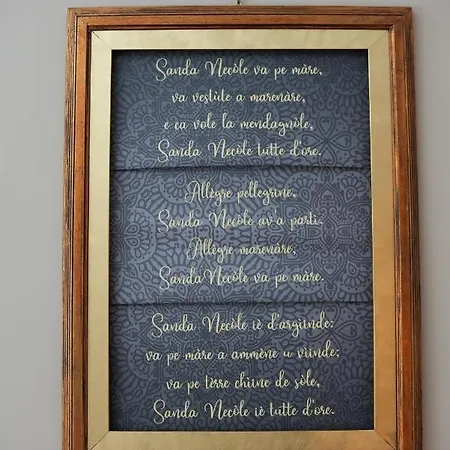 Sanda Necòle va pe màre,
va vestùte a marenàre,
e ca vole la mendagnòle,
Sanda Necòle tutte d'ore.
Allègre pellegrine,
Sanda Necòle av'a partì.
Allègre marenàre,
Sanda Necòle va pe màre.
Sanda Necòle iè d'argiinde:
va pe màre a ammène u viinde;
va pe tèrre chiine de sòle,
Sanda Necòle iè tutte d'ore.